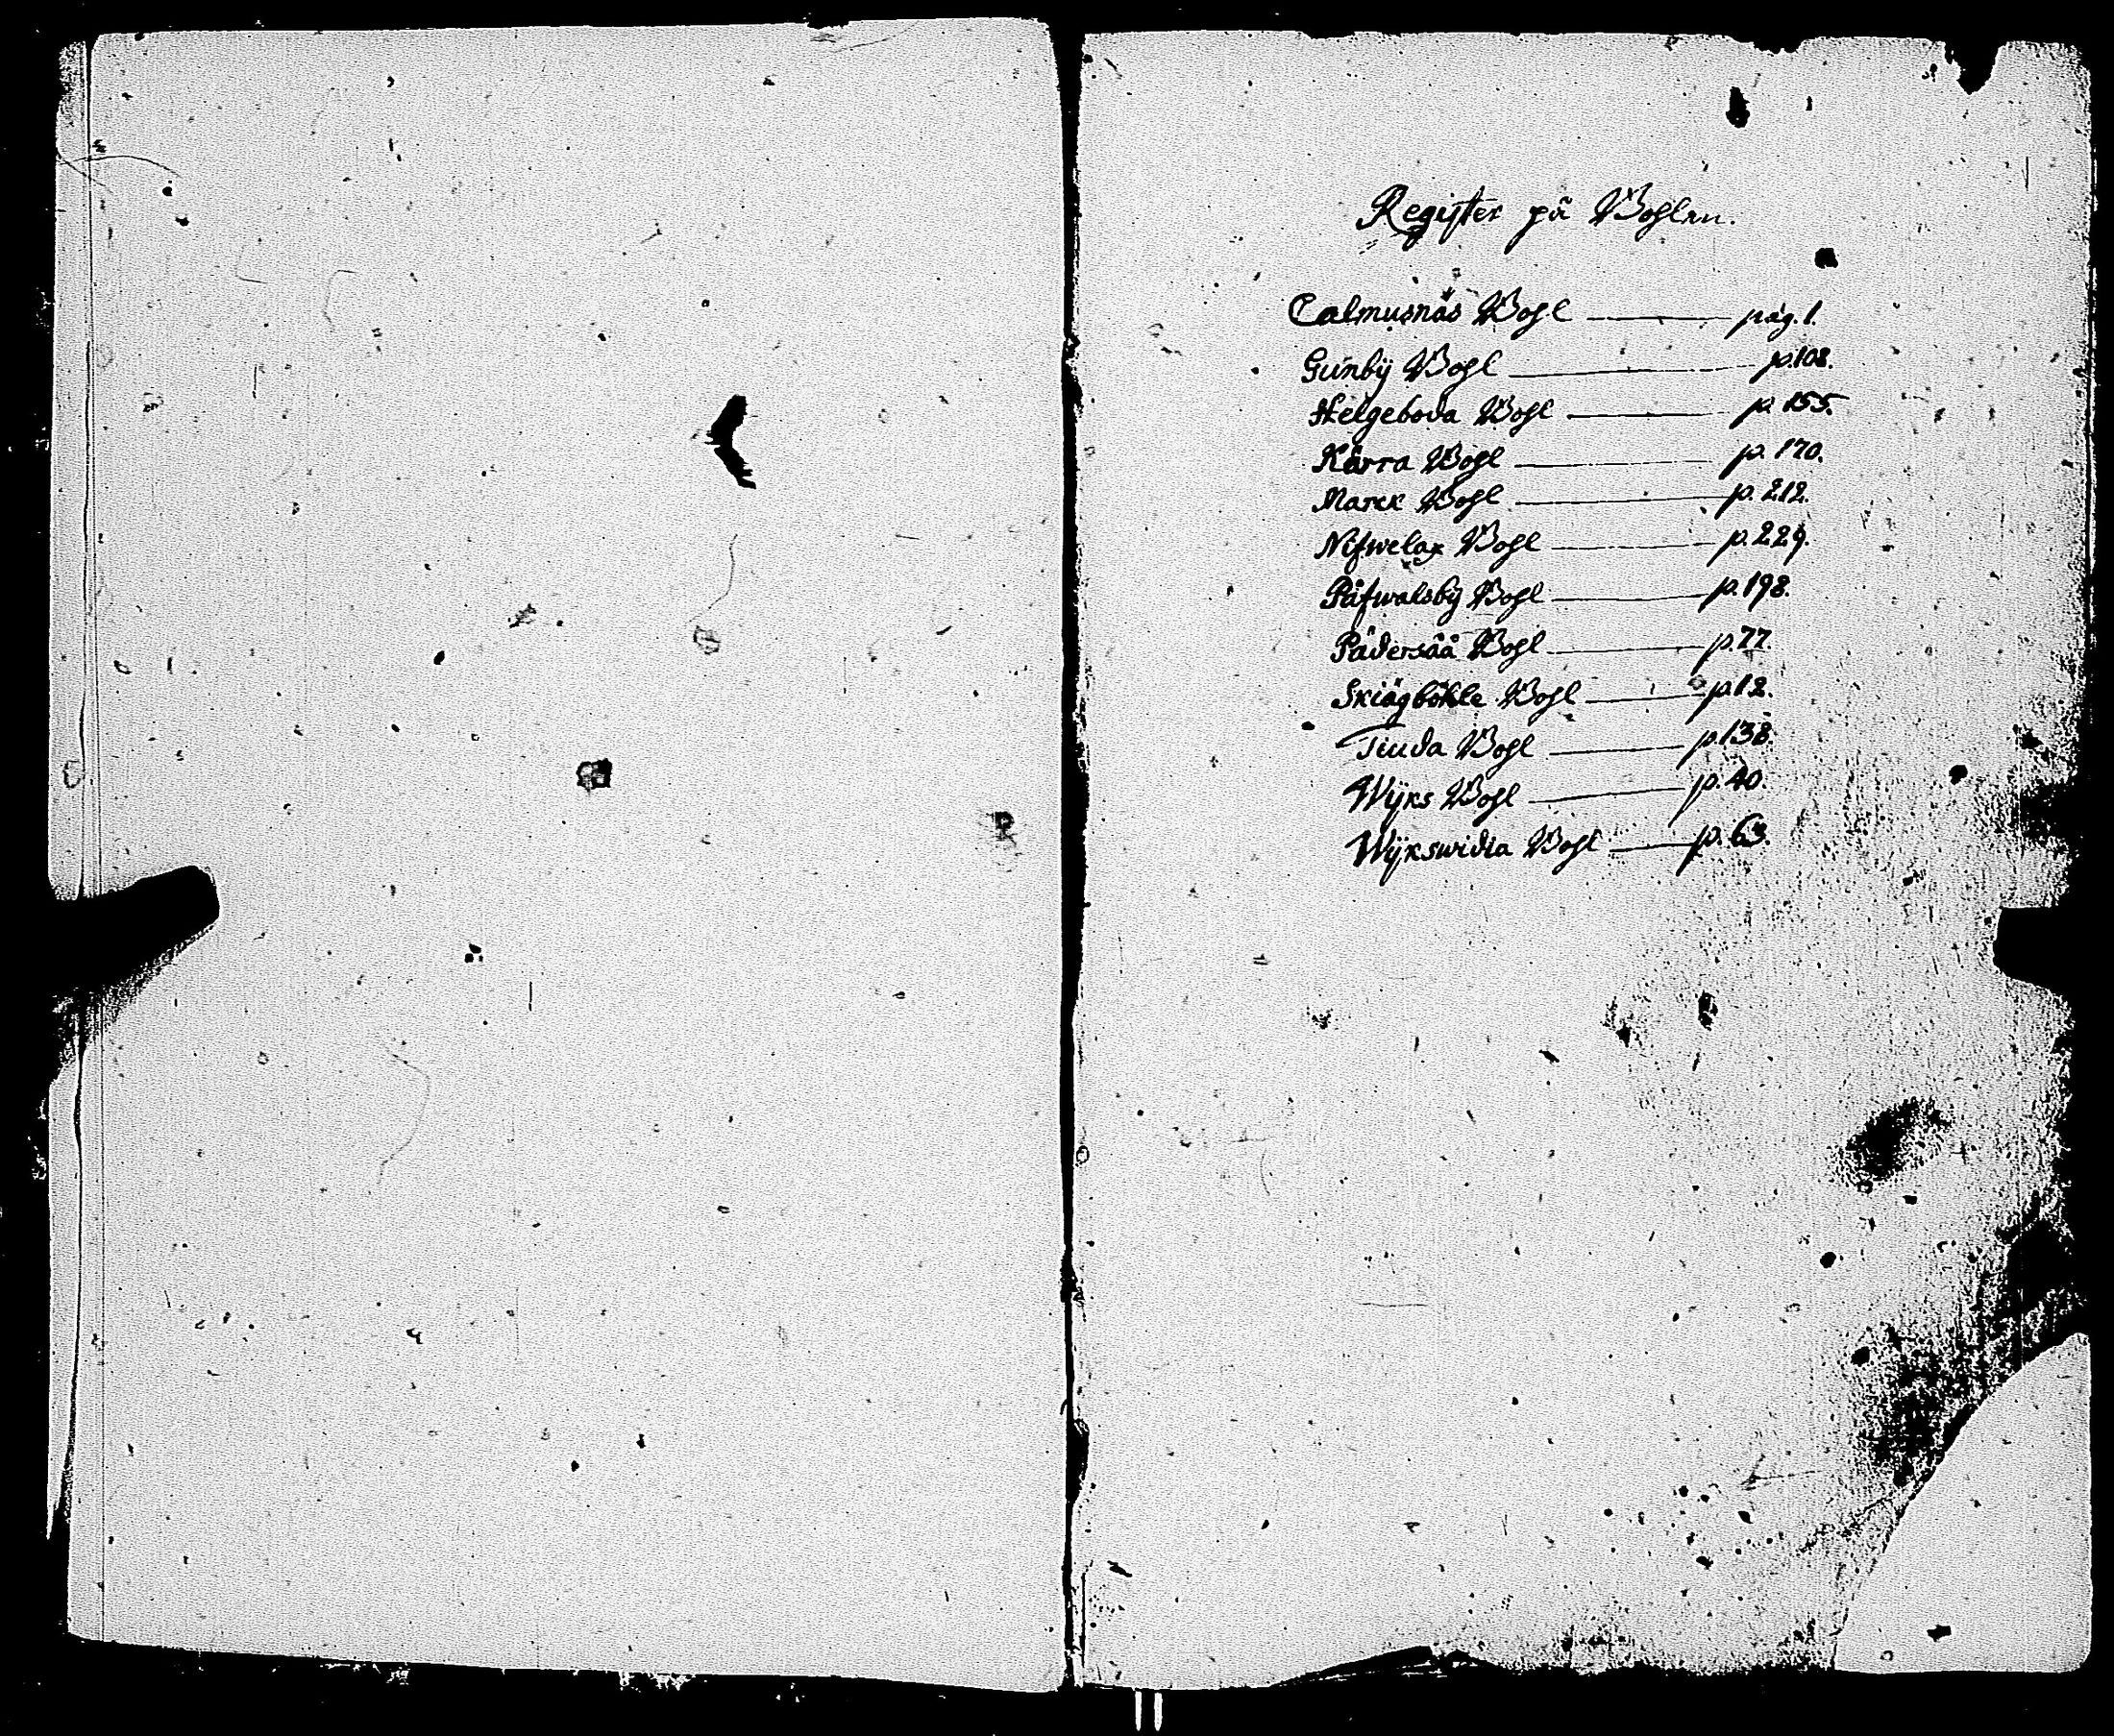 Register på Bohlen.
Calmusnäs Bohl — pag. 1.
Gunbÿ Bohl — p. 108.
Helgeboda Bohl — p. 155.
Kärra Bohl — p. 170.
Marck Bohl — p. 212.
Nifwelax Bohl — p. 229.
Påfwalsbÿ Bohl — p. 198.
Pädersåå Bohl — p. 77.
Skiägböhle Bohl — p. 12.
Tiuda Bohl — p. 138.
Wÿks Bohl — p. 40.
Wÿkswidia Bohl — p. 63.